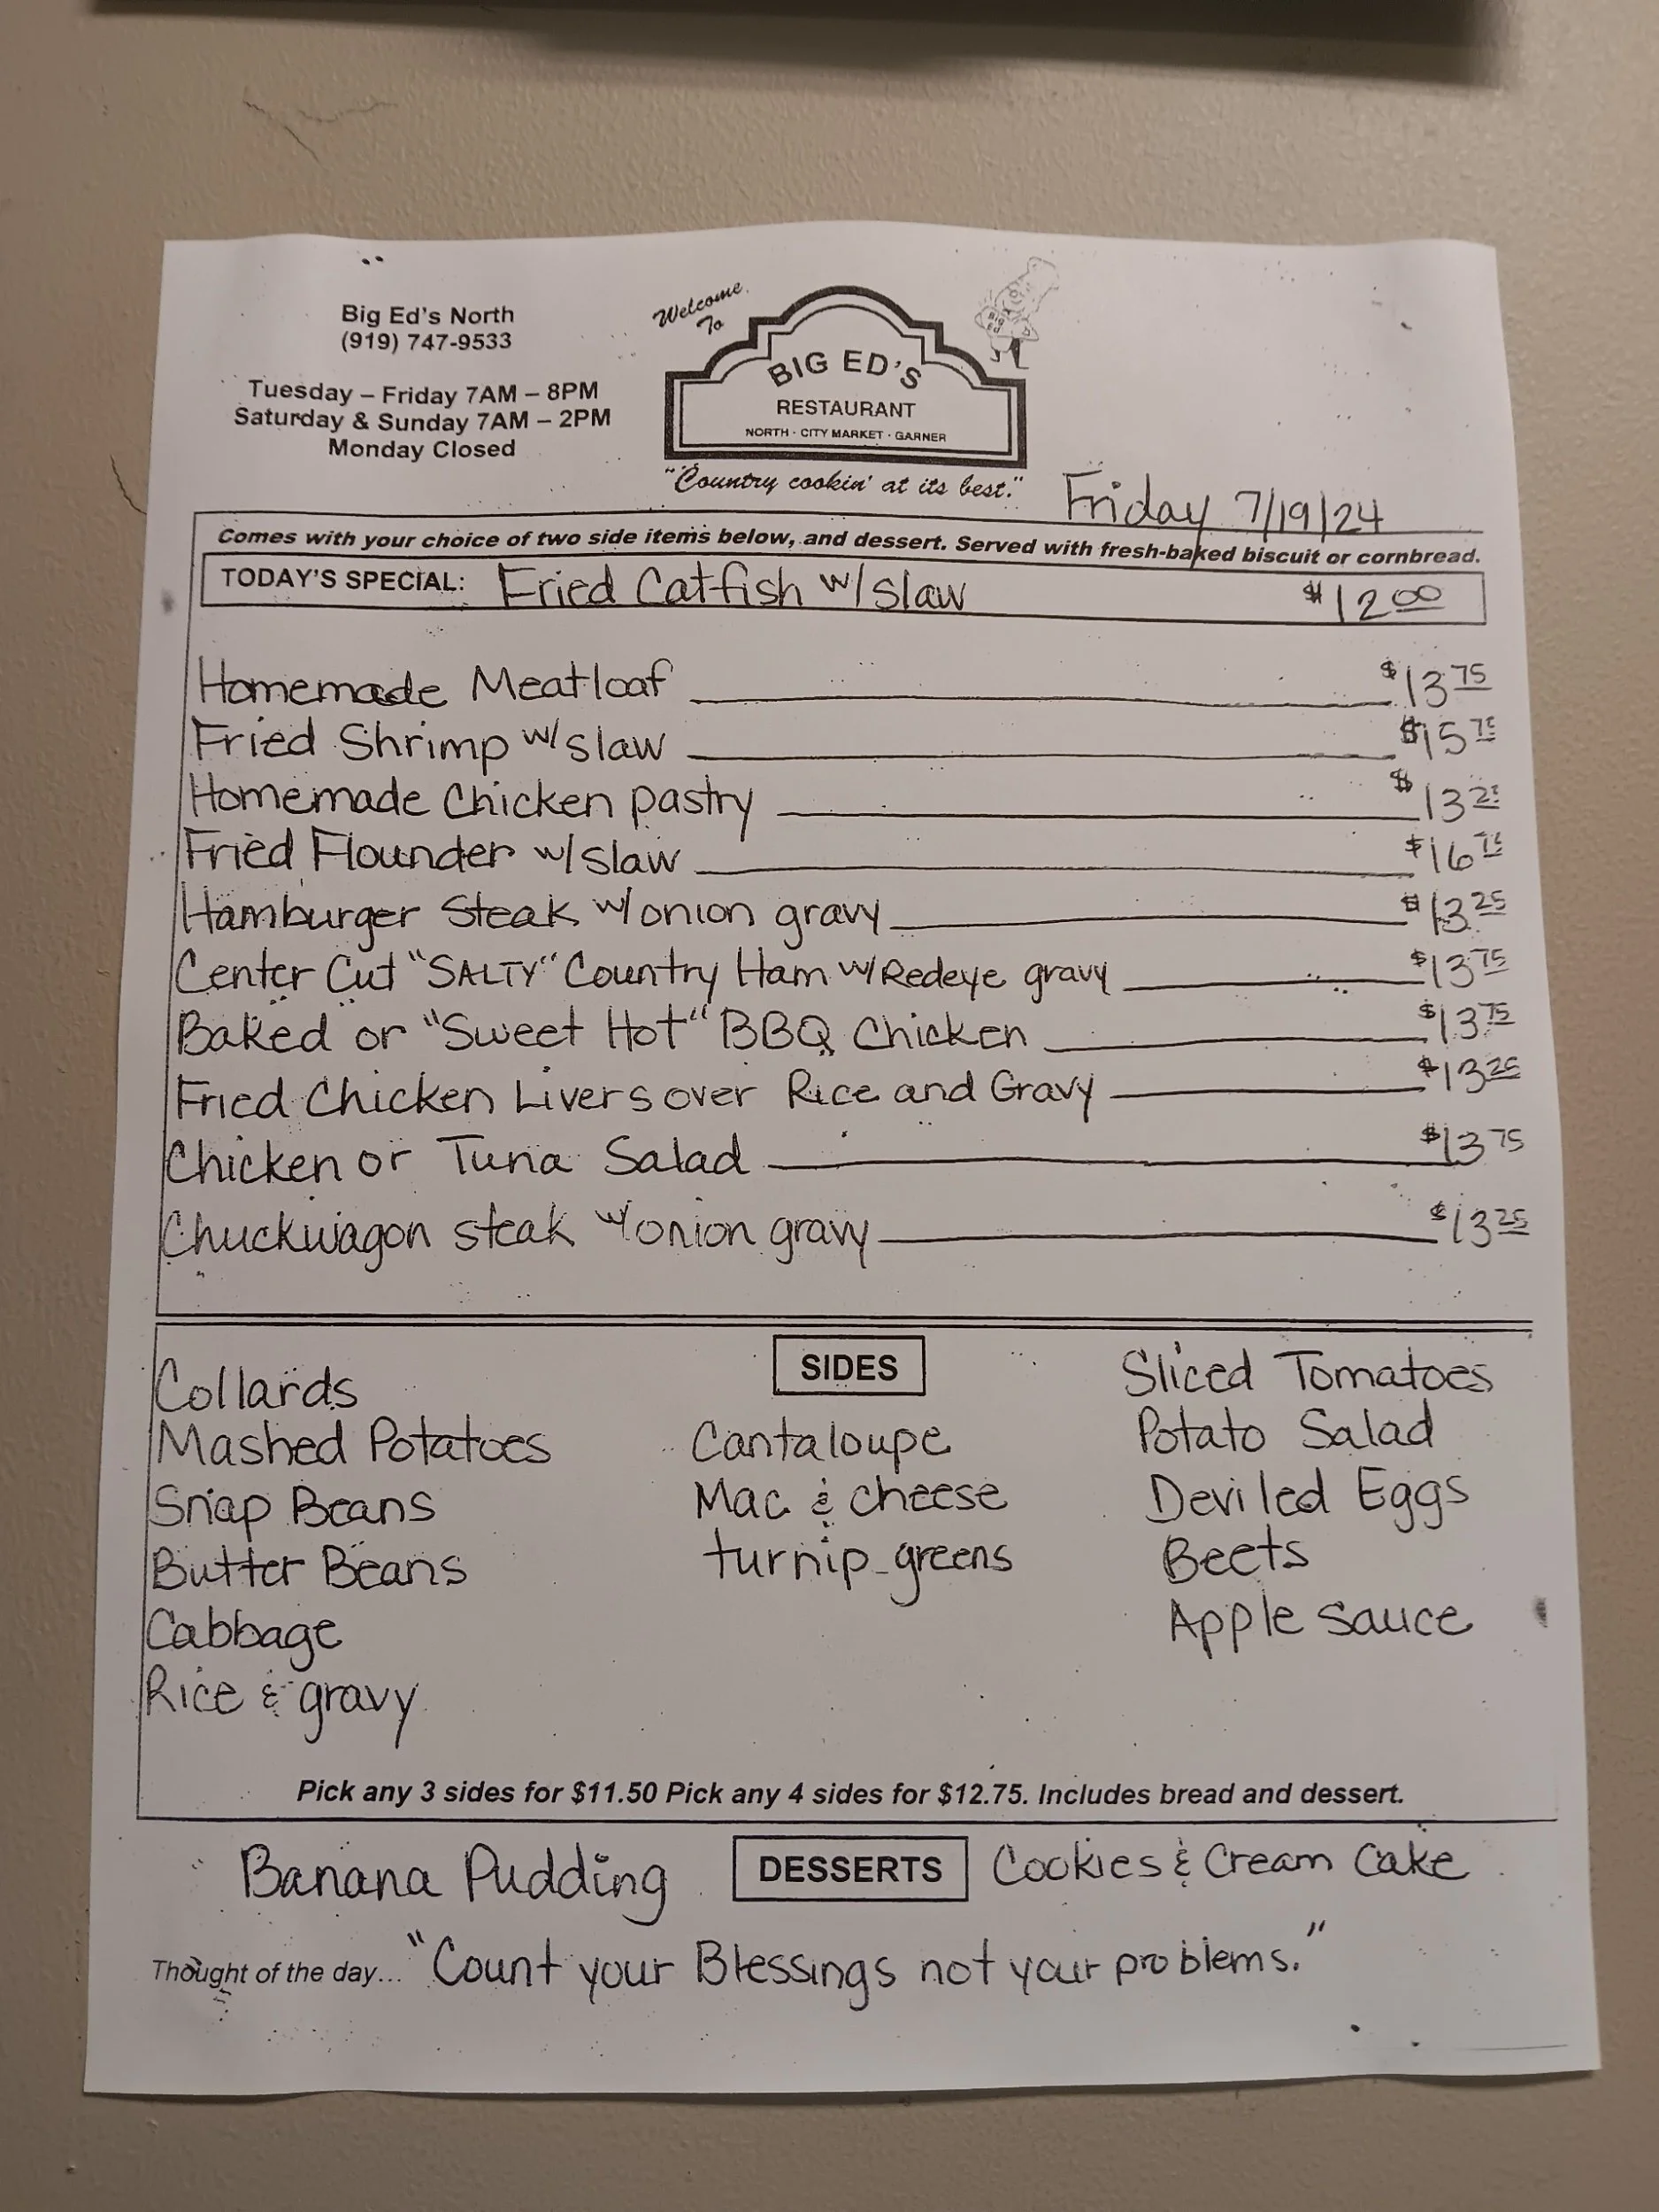 Big Ed's North
(919) 747-9533
Tuesday – Friday 7AM – 8PM
Saturday & Sunday 7AM – 2PM
Monday Closed
Welcome
To
Big Ed
BIG ED'S
RESTAURANT
NORTH · CITY MARKET · GARNER
"Country cookin' at its best."
Friday 7/19/24
Comes with your choice of two side items below, and dessert. Served with fresh-baked biscuit or cornbread.
TODAY'S SPECIAL: Fried Catfish w/slaw $12.00
Homemade Meatloaf $13.75
Fried Shrimp w/slaw $15.75
Homemade Chicken pastry $13.25
Fried Flounder w/slaw $16.75
Hamburger Steak w/onion gravy $13.25
Center Cut "SALTY" Country Ham w/Redeye gravy $13.75
Baked or "Sweet Hot" BBQ Chicken $13.75
Fried Chicken Livers over Rice and Gravy $13.25
Chicken or Tuna Salad $13.75
Chuckwagon steak w/onion gravy $13.25
SIDES
Collards
Mashed Potatoes
Snap Beans
Butter Beans
Cabbage
Rice & gravy
Cantaloupe
Mac & cheese
turnip greens
Sliced Tomatoes
Potato Salad
Deviled Eggs
Beets
Apple sauce
Pick any 3 sides for $11.50 Pick any 4 sides for $12.75. Includes bread and dessert.
Banana Pudding DESSERTS Cookies & Cream Cake
Thought of the day... "Count your Blessings not your problems."